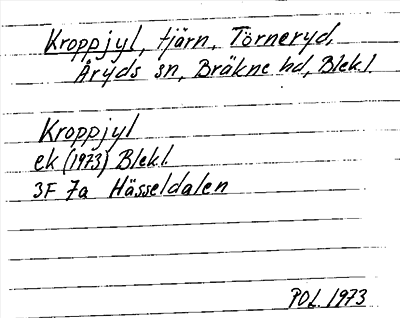 Kroppjyl, tjärn, Törneryd,
Åryds sn, Bräkne hd, Blekl.
Kroppjyl
ek (1973) Blekl.
3F 7a Hässeldalen
POL 1973